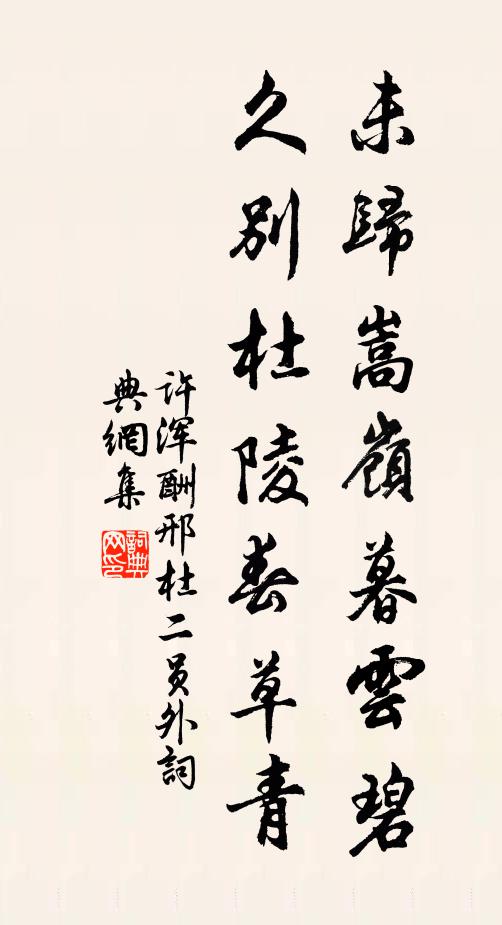 未歸嵩嶺暮雲碧
久別杜陵春草青
许浑酬邢杜二员外詞
典網集
詞典
网印